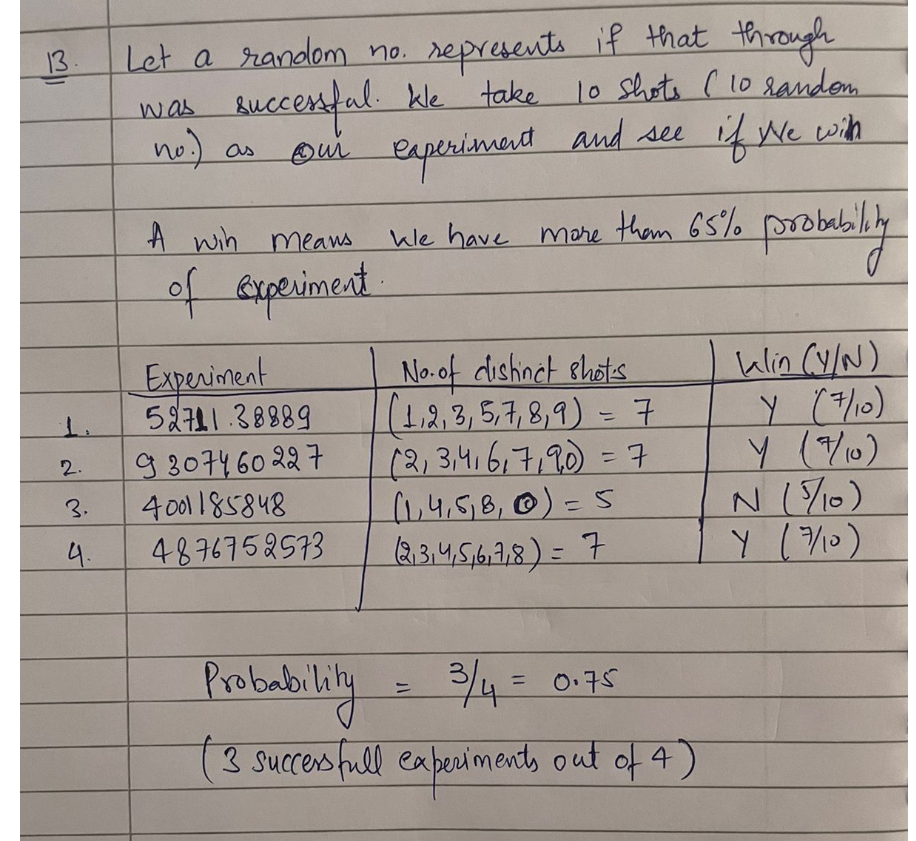 13. Let a random no. represents if that through
was successful. We take 10 shots (10 random
no.) as our experiment and see if we win
A win means we have more than 65% probability
of experiment.
Experiment No. of distinct shots Win (Y/N)
1. 52711.38889 (1,2,3,5,7,8,9) = 7 Y (7/10)
2. 9307460227 (2,3,4,6,7,9,0) = 7 Y (7/10)
3. 4001185848 (1,4,5,8,0) = 5 N (5/10)
4. 4876752573 (2,3,4,5,6,7,8) = 7 Y (7/10)
Probability = 3/4 = 0.75
(3 successfull experiments out of 4)